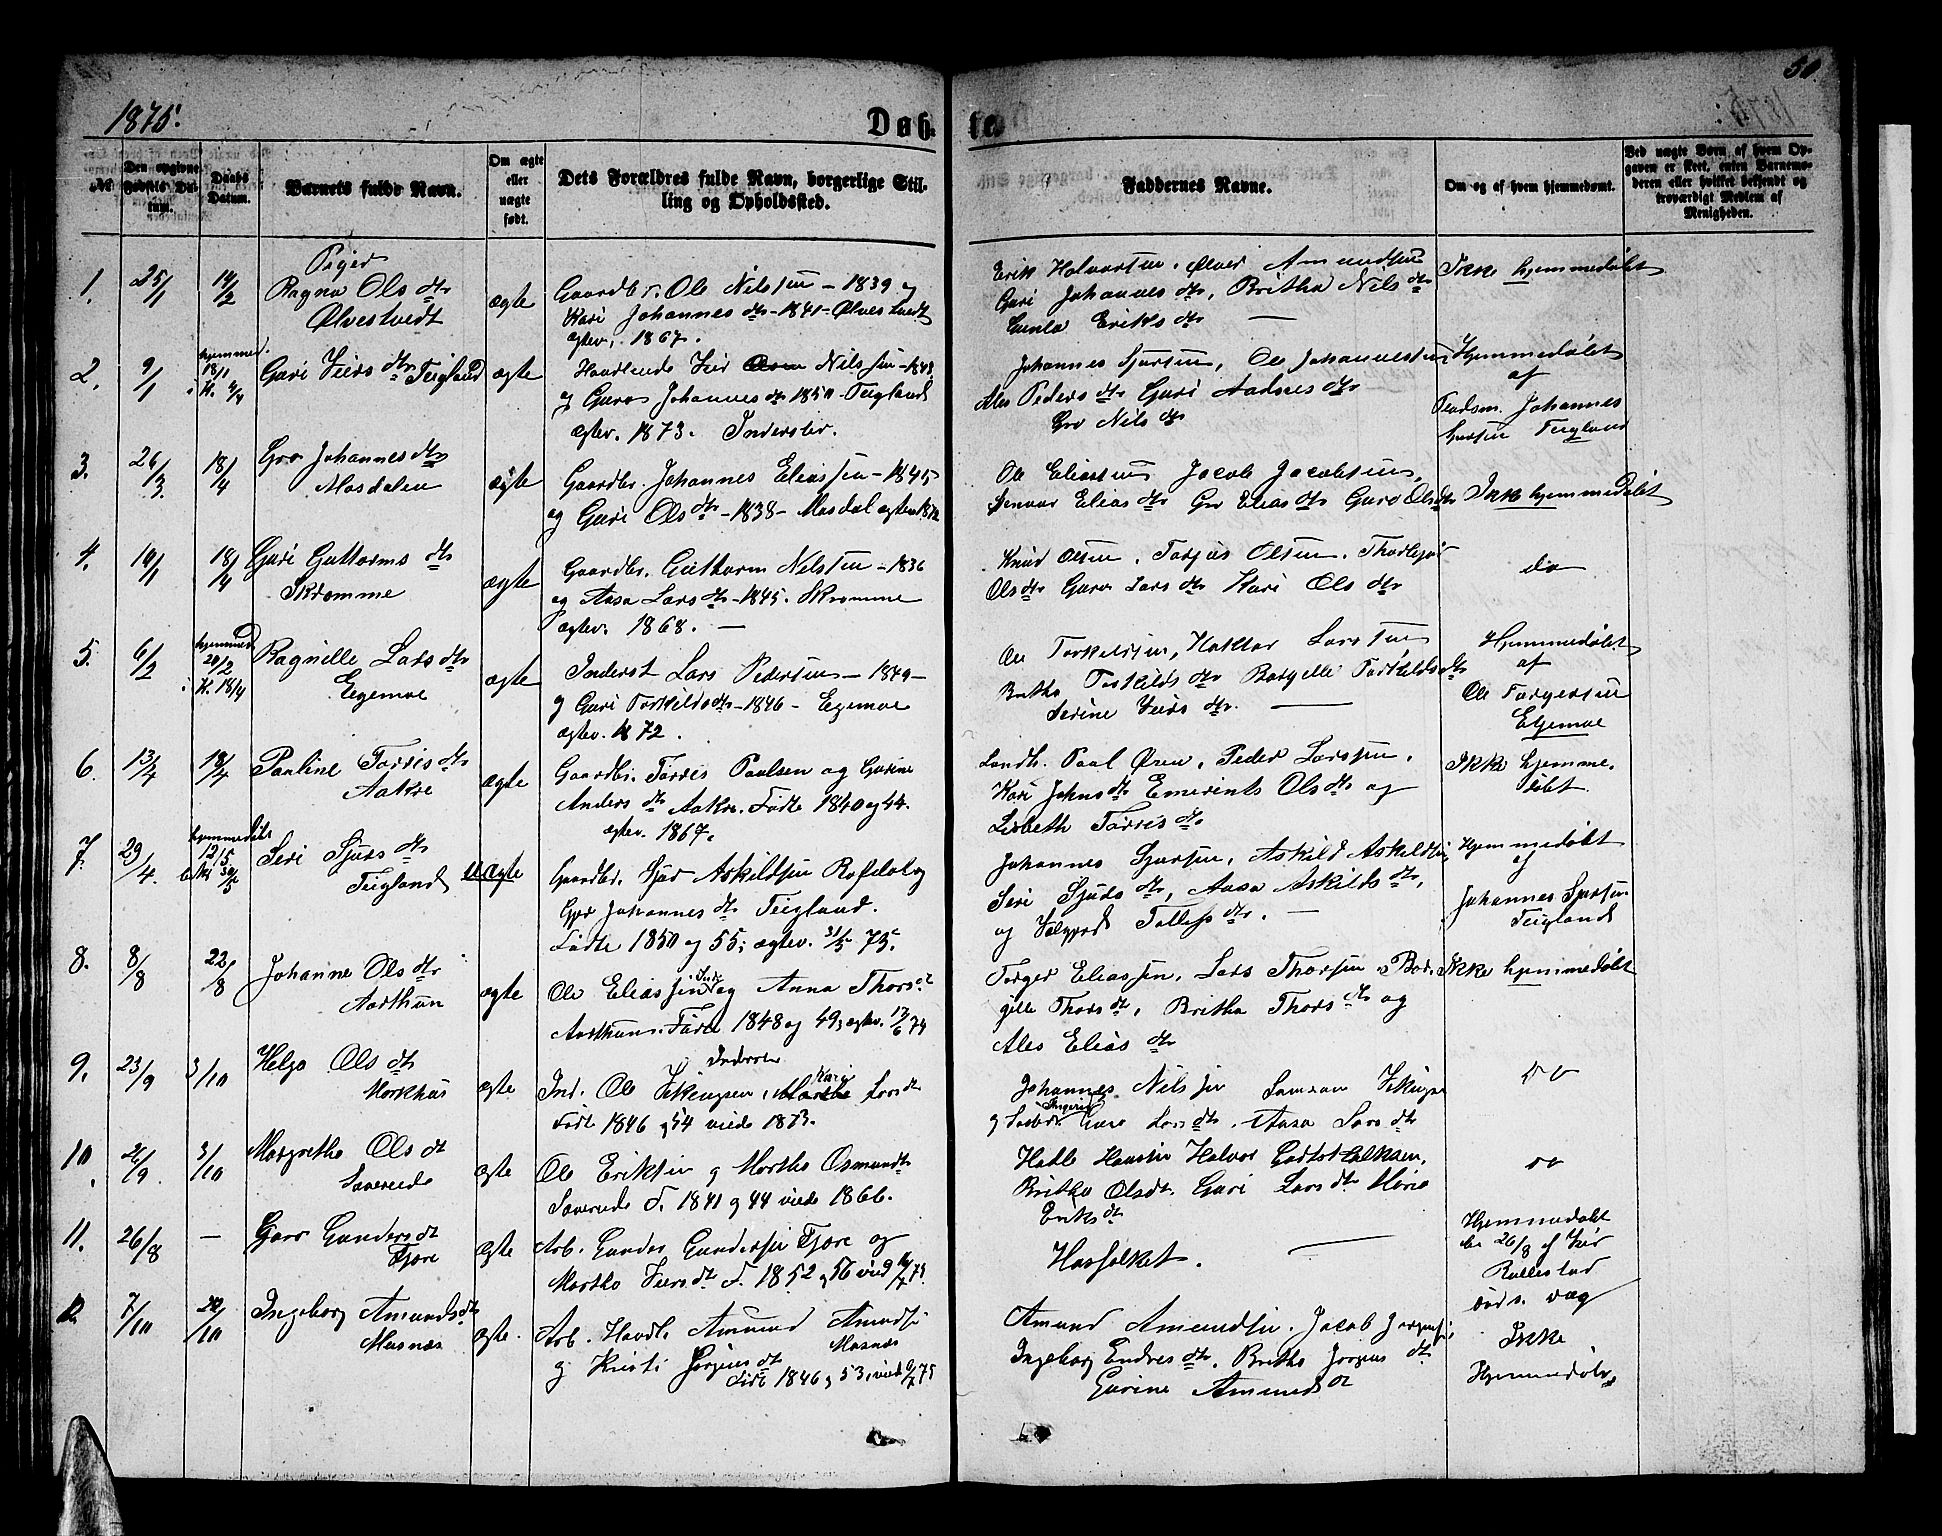 1875.
50
Døb-
te.
№
Den opgivne Fødsels Datum.
Daabs Datum.
Barnets fulde Navn.
Om ægte eller uægte født.
Dets Forældres fulde Navn, borgerlige Stilling og Opholdssted.
Faddernes Navne.
Om og af hvem hjemmedøbt.
Ved uægte Børn af hvem Opgaven er skeet, enten Barnemoderen eller hvilket bekjendt og troværdigt Medlem af Menigheden.
Piger
1. 25/1 14/2 Ragna Ols dtr
Ølvestvedt
ægte
Gaardbr. Ole Nilssen - 1839 og
Kari Johannes dtr - 1841 - Ølvestvedt
ægtev. 1867.
Erik Halvorsen, Amundsen
Guri Johannes dtr, Britha Nils dtr
Gunla Eriks dtr —
Ikke hjemmedøbt
2. 9/1 hjemmed.
18/1
i K. 4/4
Guri Iver dtr Teigland
ægte
Iver Nilssen - 1848
og Guro Johannes dtr 1850 - Teigland
ægtev. 1873. Inderster.
Johannes Sjursen, Ole Johannessen,
Ales Peders dtr Guri Aadnes dtr
Gro Nils dtr
Hjemmedøbt
af
Johannes
Teigland
3. 26/3 18/4 Gro Johannes dtr
Mosdalen
ægte
Gaardbr. Johannes Eliassen - 1845
og Guri Ols dtr - 1838 - Mosdal ægtev.
Ole Eliassen Jacob Jacobsen,
Elias dtr Gro Elias dtr Guro Ols dtr
Ikke hjemmedøbt
4. 10/1 18/4 Guri Guttorms dtr
Skromme
ægte
Gaardbr. Guttorm Nilssen - 1836
og Aasa Lars dtr - 1845. Skromme
ægtev. 1868. —
Knud Olsen, Torjus Olsen,
Ols dtr Guro Lars dtr Kari Ols dtr
do
5. 6/2 hjemmed.
20/2
i K. 18/4
Ragnille Lars dtr
Egemoe
ægte
Inderst Lars Pedersen - 1849 -
og Guri Torkilds dtr - 1846 - Egemoe
ægtev. 1872.
Ole Torkildsen, Larssen
Britha Torkilds dtr Borgille Torkilds dtr
Serine Iver dtr. —
Hjemmedøbt
af
Ole Torgersen
Egemoe
6. 13/4 18/4 Pauline Torris dtr
Aakre
ægte
Gaardbr. Torris Paulsen og Gurine
Anders dtr Aakre. Fødte 1840 og 44.
ægtev. 1867.
Landh. Paal Øren, Peder Larssen,
Kari Johns dtr Emerints Ols dtr og
Lisbeth Torris dtr
Ikke hjemme-
døbt.
7. 29/4. hjemmedøbt
12/5
30/5
Seri Sjurs dtr
Teigland
uægte
Gaardbr. Sjur Askildsen og
Gro Johannes dtr Teigland.
Fødte 1850 og 55; ægtev. 31/5 75.
Johannes Sjursen, Askild Askildsen
Seri Sjurs dtr, Aasa Askilds dtr,
og dtr. —
Hjemmedøbt
af
Johannes Sjursen
Teigland
8. 8/8 22/8 Johanne Ols dtr
Aarthun
ægte
Ole Eliassen Ind. og Anna Thors dt
Aarthun. Fødte 1848 og 49, ægtev. 17/6 74
Torger Eliassen, Lars Thorsen, Bor-
gille Thors dtr, Britha Thors dtr og
Ales Elias dtr
Ikke hjemmedøbt
9. 23/9 3/10 Helga Ols dtr
Morkhus
ægte
Ind. Ole Vikingsen, Kari Lars dt
Født 1846 og 54 viede 1873.
Johannes Nilssen Samson Vikingsen
og Ingerid Guro Lars dtr. Aasa Lars dtr
do
10. 26/9. 3/10 Margretha Ols dt
Saverede
ægte
Ole Eriksen og Martha Osmunds dt
Saverede F. 1841 og 44 viede 1866.
Hansen Halvor
Britha Olsdt. Guri Lars dtr
Eriks dt
do
11. 26/8 — Guro Gunders dt
Fjøre
Ægte
Arb. Gunder Gundersen Fjøre og
Martha Iversdt F. 1852 og 56 viede
Husfolket. —
Hjemmedøbt
26/8 af Iver
Rullestad
døds. væg
12. 7/10 Ingeborg Amunds dt
Mosnæs
ægte.
Arb. Amund Amundsen
Mosnæs
og Kristi Jørgens dt
født 1846 og 53, viede 75
Amund Amundsen, Jacob Jørgensen,
Ingeborg Endres dtr, Britha Jørgens dt
Gurine Amunds dt
Ikke
Hjemmedøbt